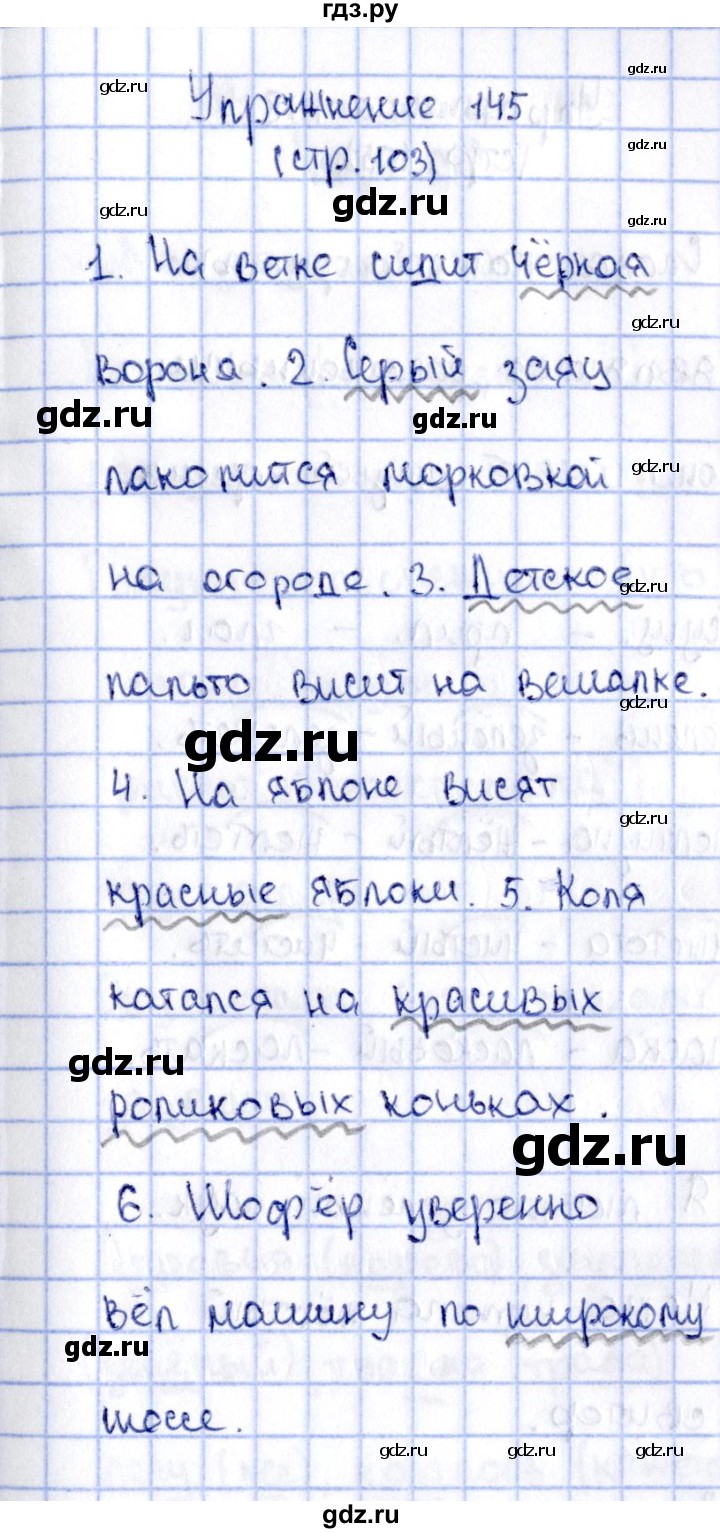 гдз.ру
gdz.ru
gdz.ru
Упражнение 145
gdz.ru
(стр. 103)
gdz.ru
gdz.ru
gdz.ru
1. На ветке сидит чёрная
gdz.ru
ворона. 2. Серый заяц
gdz.ru
gdz.ru
gdz.ru
лакомится морковкой
на огороде. 3. Детское
gdz.ru
пальто висит на вешалке.
gdz.ru
gdz.ru
4. На яблоне висят
gdz.ru
красные яблоки. 5. Коля
катался на красивых
gdz.ru
gdz.ru
роликовых коньках.
gdz.ru
6. Шофёр уверенно
вёл машину по широкому
gdz.ru
gdz.ru
шоссе.
gdz.ru
gdz.ru
gdz.ru
gdz.ru